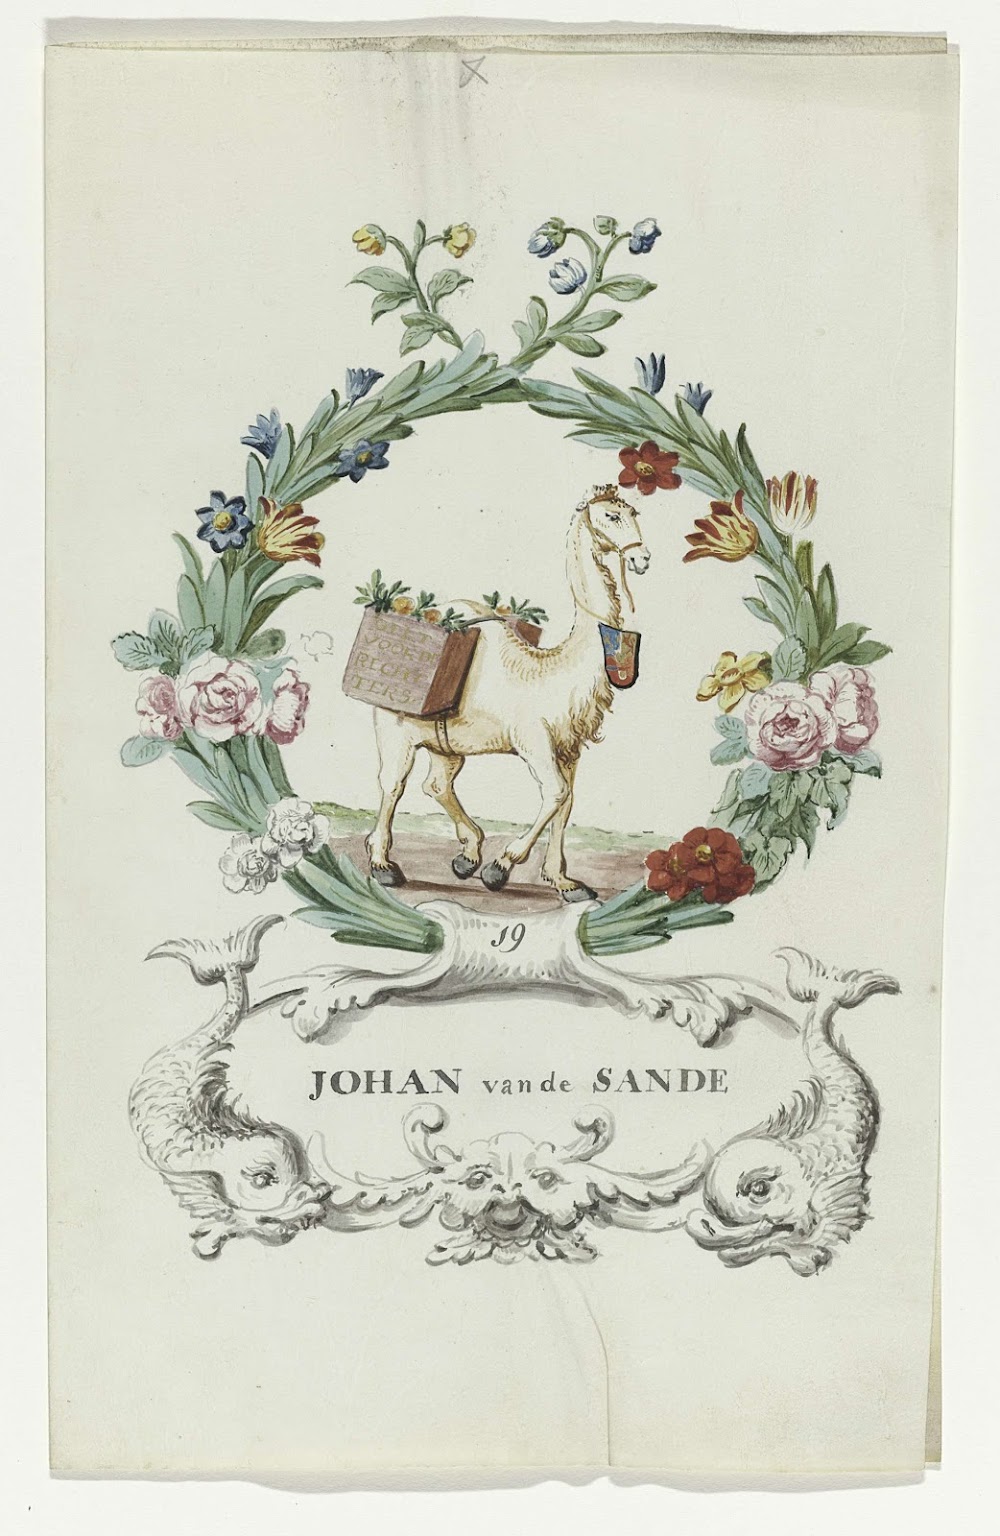 VOOR DE
RECH
TERS.
19
JOHAN van de SANDE